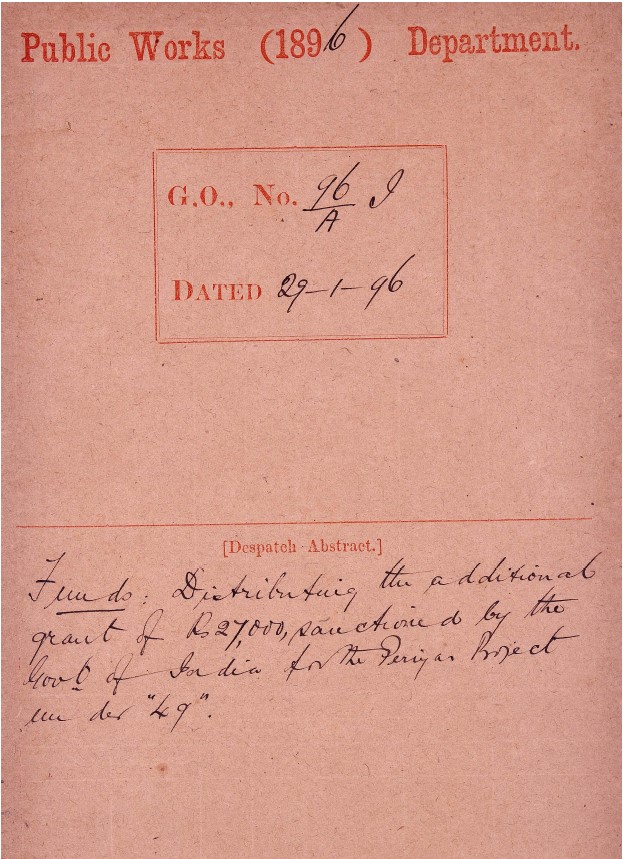 Public Works (1896) Department.
G.O., No. 96/A I
DATED 29-1-96
[Despatch Abstract.]
Funds: Distributing the additional
grant of Rs 27,000, sanctioned by the
Govt of India for the Periyar Project
under "49".